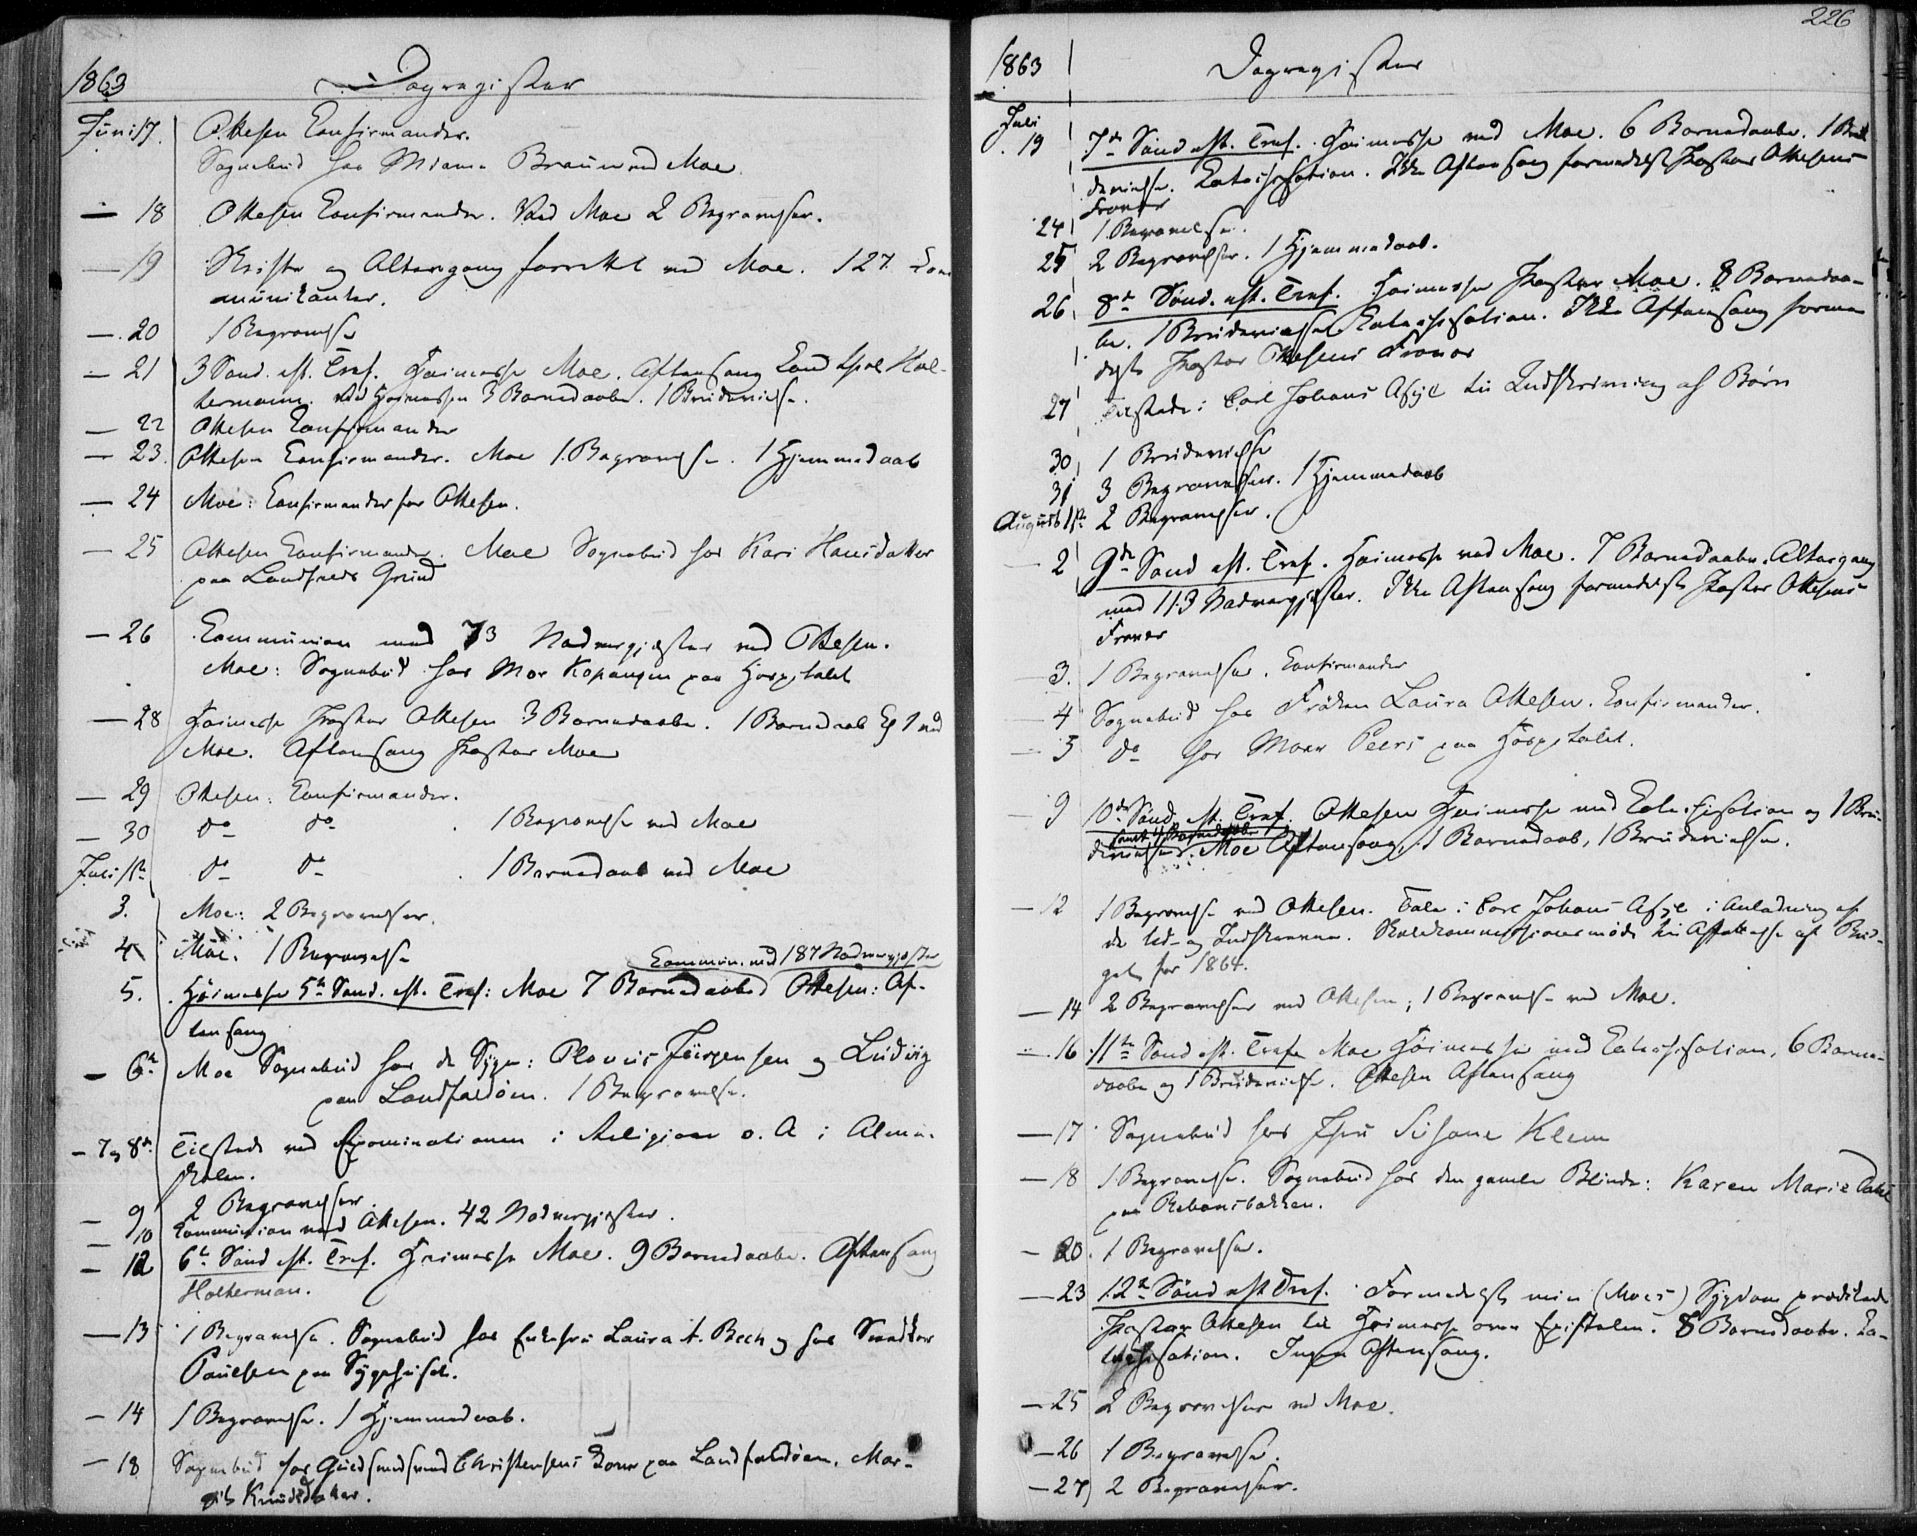 1863 Dagregister
Juni 17. Ottesen Confirmander.
Sognebud hos Madme Braun ved Moe.
— 18 Ottesen Confirmander. Ved Moe 2 Begravelser.
— 19 Skrifte og Altergang forrettet ved Moe. 127 Com
munikanter.
— 20 1 Begravelse
— 21 3 Sønd. eft. Tref. Høimesse Moe. Aftensang Cand theol Hol-
termann. Ved Høimessen 3 Barnedaabe. 1 Brudevielse.
— 22 Ottesen Confirmander
— 23. Ottesen Confirmander. Moe 1 Begravelse. 1 Hjemmedaab
— 24 Moe: Confirmander for Ottesen.
— 25 Ottesen Confirmander. Moe Sognebud hos Kari Hansdatter
paa Landfalds Grund
— 26 Communion med 73 Nadvergjæster ved Ottesen.
Moe: Sognebud hos Mor Kopangen paa Hospitalet
— 28 Høimesse Pastor Ottesen 3 Barnedaabe. 1 Barnedaab ved
Moe. Aftensang Pastor Moe
— 29 Ottesen: Confirmander.
— 30 do do 1 Begravelse ved Moe
Juli 1ste do do 1 Barnedaab ved Moe
3. Moe: 2 Begravelser.
4 Moe: 1 Begravelse
Commun. med 187 Nadvergjæster
5. Høimesse 5te Sønd. eft. Tref: Moe 7 Barnedaabe Ottesen: Af-
tensang
— 6te Moe Sognebud hos de Syge: Jørgensen og Ludvig
paa Landfaldøen. 1 Begravelse.
— 7 og 8de Tilstede ved Examinationen i Religion o. A i Almu-
skolen.
— 9 2 Begravelser
— 10 Communion ved Ottesen. 42 Nadvergjæster.
— 12 6te Sønd eft. Tref. Høimesse Moe. 9 Barnedaabe. Aftensang
Holterman.
— 13 1 Begravelse. Sognebud hos Enkefru Laura A. Bech og hos Snedker
Paulsen paa Sygehuset.
— 14 1 Begravelse. 1 Hjemmedaab.
— 18 Sognebud hos Christensens Kone paa Landfaldøen, Mar-
git Knudsdatter.
226
1863 Dagregister
Juli
19 7de Sønd eft. Tref. Høimesse ved Moe. 6 Barnedaabe. 1 Bru
devielse. Katechisation. Ikke Aftensang formedelst Pastor Ottesens
Fravær
24 1 Begravelse.
25 2 Begravelser. 1 Hjemmedaab.
26 8de Sønd. eft. Tref. Høimesse Pastor Moe. 8 Barnedaa-
be. 1 Brudevielse Katechisation. Ikke Aftensang forme
delst Pastor Ottesens Fravær
27 Tilstede i Carl Johans Asyl til Indskrivning af Børn
30 1 Brudevielse
31 3 Begravelser. 1 Hjemmedaab
August 1ste 2 Begravelser.
— 2 9de Sønd eft. Tref. Høimesse ved Moe. 7 Barnedaabe. Altergang
med 113 Nadvergjæster. Ikke Aftensang formedelst Pastor Ottesens
Fravær
— 3. 1 Begravelse. Confirmander
— 4 Sognebud hos Frøken Laura Ottesen. Confirmander.
— 5 do hos Moer Peers paa Hospitalet.
— 9 10de Sønd. eft. Tref. Ottesen Høimesse med Katechisation og 1 Bru
samt 1 Barnedaab.
devielse. Moe Aftensang, 1 Barnedaab, 1 Brudevielse.
— 12 1 Begravelse ved Ottesen. Tale i Carl Johans Asyl i Anledning af
de Ud- og Indskrevne. Skolekommissionsmøde til Affattelse af Bud-
get for 1864.
— 14 2 Begravelser ved Ottesen; 1 Begravelse ved Moe.
— 16 11te Sønd eft. Tref Moe Høimesse med Katechisation, 6 Barne-
daabe og 1 Brudevielse. Ottesen Aftensang
— 17 Sognebud hos Jfru Susane Klem
— 18 1 Begravelse. Sognebud hos den gamle Blinde: Karen Marie
paa Rebansbakken.
— 20. 1 Begravelse.
— 23 12te Sønd eft Tref. Formedelst min (Moes) Sygdom prædikede
Pastor Ottesen til Høimesse over Epistelen. 8 Barnedaabe. Ka-
techisation. Ingen Aftensang.
— 25 2 Begravelser ved Moe.
— 26 1 Begravelse.
— 27 2 Begravelser.